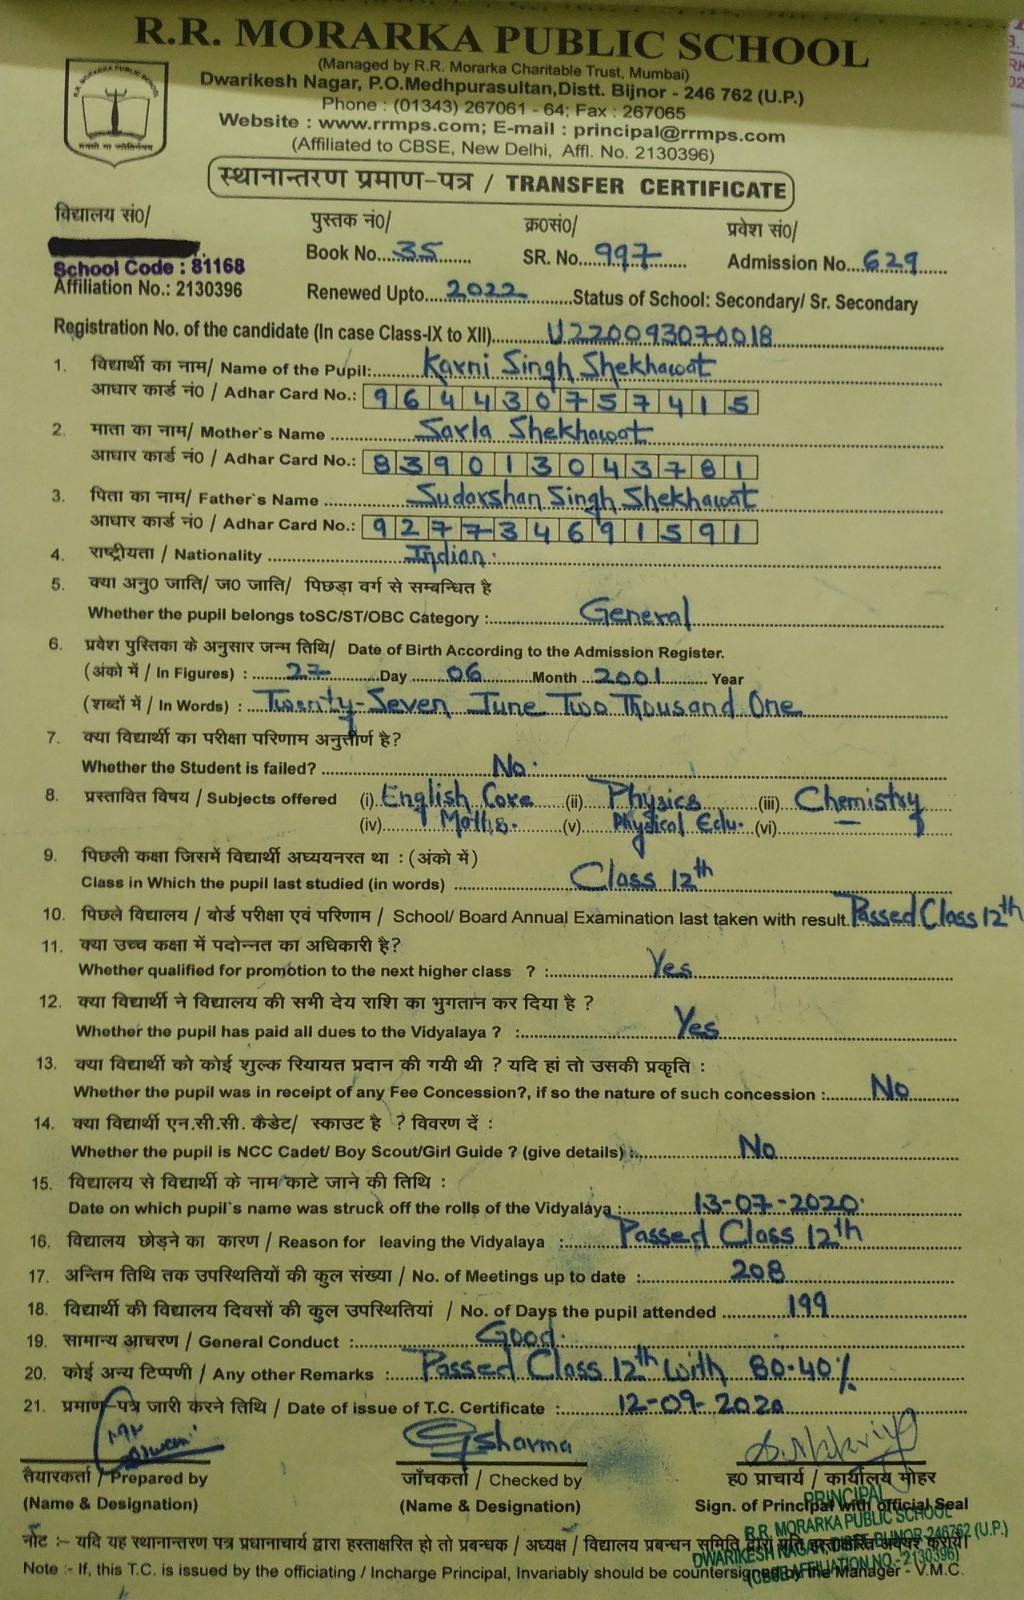 R.R. MORARKA PUBLIC SCHOOL
(Managed by R.R. Morarka Charitable Trust, Mumbai)
Dwarikesh Nagar, P.O.Medhpurasultan,Distt. Bijnor - 246 762 (U.P.)
Phone : (01343) 267061 - 64; Fax : 267065
Website : www.rrmps.com; E-mail : principal@rrmps.com
(Affiliated to CBSE, New Delhi, Affl. No. 2130396)
R.R. MORARKA PUBLIC SCHOOL
स्थानान्तरण प्रमाण-पत्र / TRANSFER CERTIFICATE
विद्यालय सं0/ पुस्तक नं0/ क्र0सं0/ प्रवेश सं0/
Book No. 35 SR. No. 997 Admission No. 629
School Code : 81168
Affiliation No.: 2130396 Renewed Upto 2022 Status of School: Secondary/ Sr. Secondary
Registration No. of the candidate (In case Class-IX to XII) U220093070018
1. विद्यार्थी का नाम/ Name of the Pupil: Karni Singh Shekhawat
आधार कार्ड नं0 / Adhar Card No.: 964430757415
2. माता का नाम/ Mother's Name Sarla Shekhawat
आधार कार्ड नं0 / Adhar Card No.: 839013043781
3. पिता का नाम/ Father's Name Sudarshan Singh Shekhawat
आधार कार्ड नं0 / Adhar Card No.: 927734691591
4. राष्ट्रीयता / Nationality Indian.
5. क्या अनु0 जाति/ ज0 जाति/ पिछड़ा वर्ग से सम्बन्धित है
Whether the pupil belongs toSC/ST/OBC Category : General
6. प्रवेश पुस्तिका के अनुसार जन्म तिथि/ Date of Birth According to the Admission Register.
(अंको में / In Figures) : 27 Day 06 Month 2001 Year
(शब्दों में / In Words) : Twenty-Seven June Two Thousand One
7. क्या विद्यार्थी का परीक्षा परिणाम अनुत्तीर्ण है?
Whether the Student is failed? No.
8. प्रस्तावित विषय / Subjects offered (i) English Core (ii) Physics (iii) Chemistry
(iv) Maths. (v) Physical Edu. (vi)
9. पिछली कक्षा जिसमें विद्यार्थी अघ्ययनरत था : (अंको में)
Class in Which the pupil last studied (in words) Class 12th
10. पिछले विद्यालय / बोर्ड परीक्षा एवं परिणाम / School/ Board Annual Examination last taken with result. Passed Class 12th
11. क्या उच्च कक्षा में पदोन्नत का अधिकारी है?
Whether qualified for promotion to the next higher class ? : Yes
12. क्या विद्यार्थी ने विद्यालय की सभी देय राशि का भुगतान कर दिया है ?
Whether the pupil has paid all dues to the Vidyalaya ? : Yes
13. क्या विद्यार्थी को कोई शुल्क रियायत प्रदान की गयी थी ? यदि हां तो उसकी प्रकृति :
Whether the pupil was in receipt of any Fee Concession?, if so the nature of such concession : No
14. क्या विद्यार्थी एन.सी.सी. कैडेट/ स्काउट है ? विवरण दें :
Whether the pupil is NCC Cadet/ Boy Scout/Girl Guide ? (give details) : No
15. विद्यालय से विद्यार्थी के नाम काटे जाने की तिथि :
Date on which pupil's name was struck off the rolls of the Vidyalaya : 13-07-2020.
16. विद्यालय छोड़ने का कारण / Reason for leaving the Vidyalaya : Passed Class 12th
17. अन्तिम तिथि तक उपस्थितियों की कुल संख्या / No. of Meetings up to date : 208
18. विद्यार्थी की विद्यालय दिवसों की कुल उपस्थितियां / No. of Days the pupil attended 199
19. सामान्य आचरण / General Conduct : Good.
20. कोई अन्य टिप्पणी / Any other Remarks : Passed Class 12th with 80.40%
21. प्रमाण-पत्र जारी करने तिथि / Date of issue of T.C. Certificate : 12-09-2020
Gsharma
तैयारकर्ता / Prepared by जाँचकर्ता / Checked by ह0 प्राचार्य / कार्यालय मोहर
(Name & Designation) (Name & Designation) Sign. of Principal with official Seal
PRINCIPAL
R.R. MORARKA PUBLIC SCHOOL
DWARIKESH NAGAR, DISTT. BIJNOR-246762 (U.P.)
(CBSE AFFILIATION NO.- 2130396)
नोट :- यदि यह स्थानान्तरण पत्र प्रधानाचार्य द्वारा हस्ताक्षरित हो तो प्रबन्धक / अध्यक्ष / विद्यालय प्रबन्धन समिति द्वारा प्रति हस्ताक्षरित अवश्य करायें।
Note :- If, this T.C. is issued by the officiating / Incharge Principal, Invariably should be countersigned by the Manager - V.M.C.